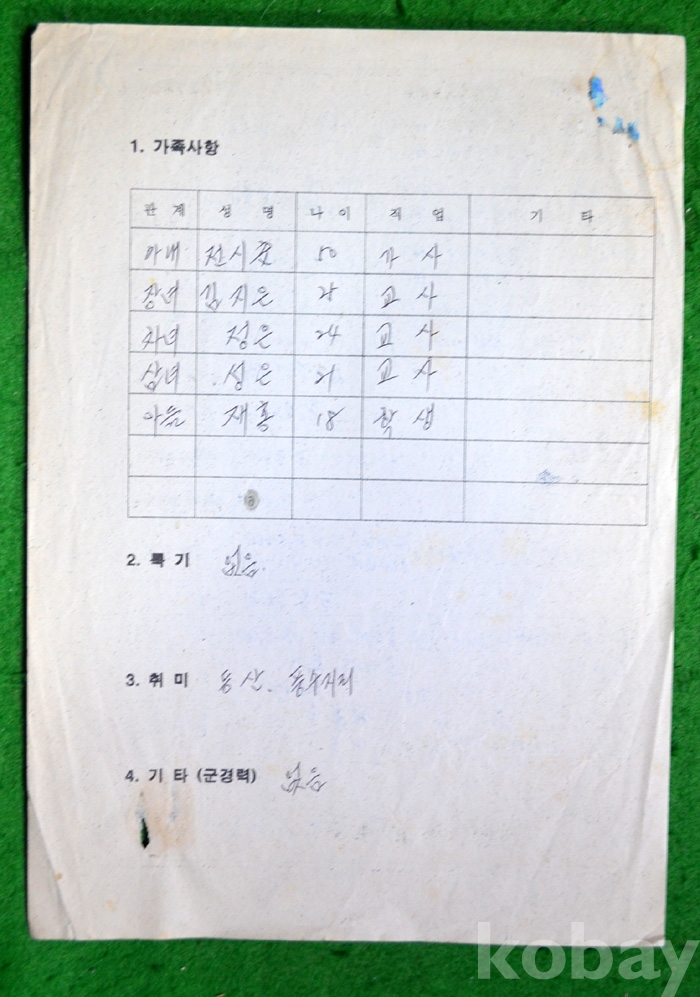 1. 가족사항
관 계 성 명 나 이 직 업 기 타
아내 전시 50 가 사
장녀 김지은 28 교 사
차녀 정은 24 교 사
삼녀 성은 21 교 사
아들 재홍 18 학 생
2. 특 기 없음
3. 취 미 등산.
4. 기 타 (군경력) 없음
kobay